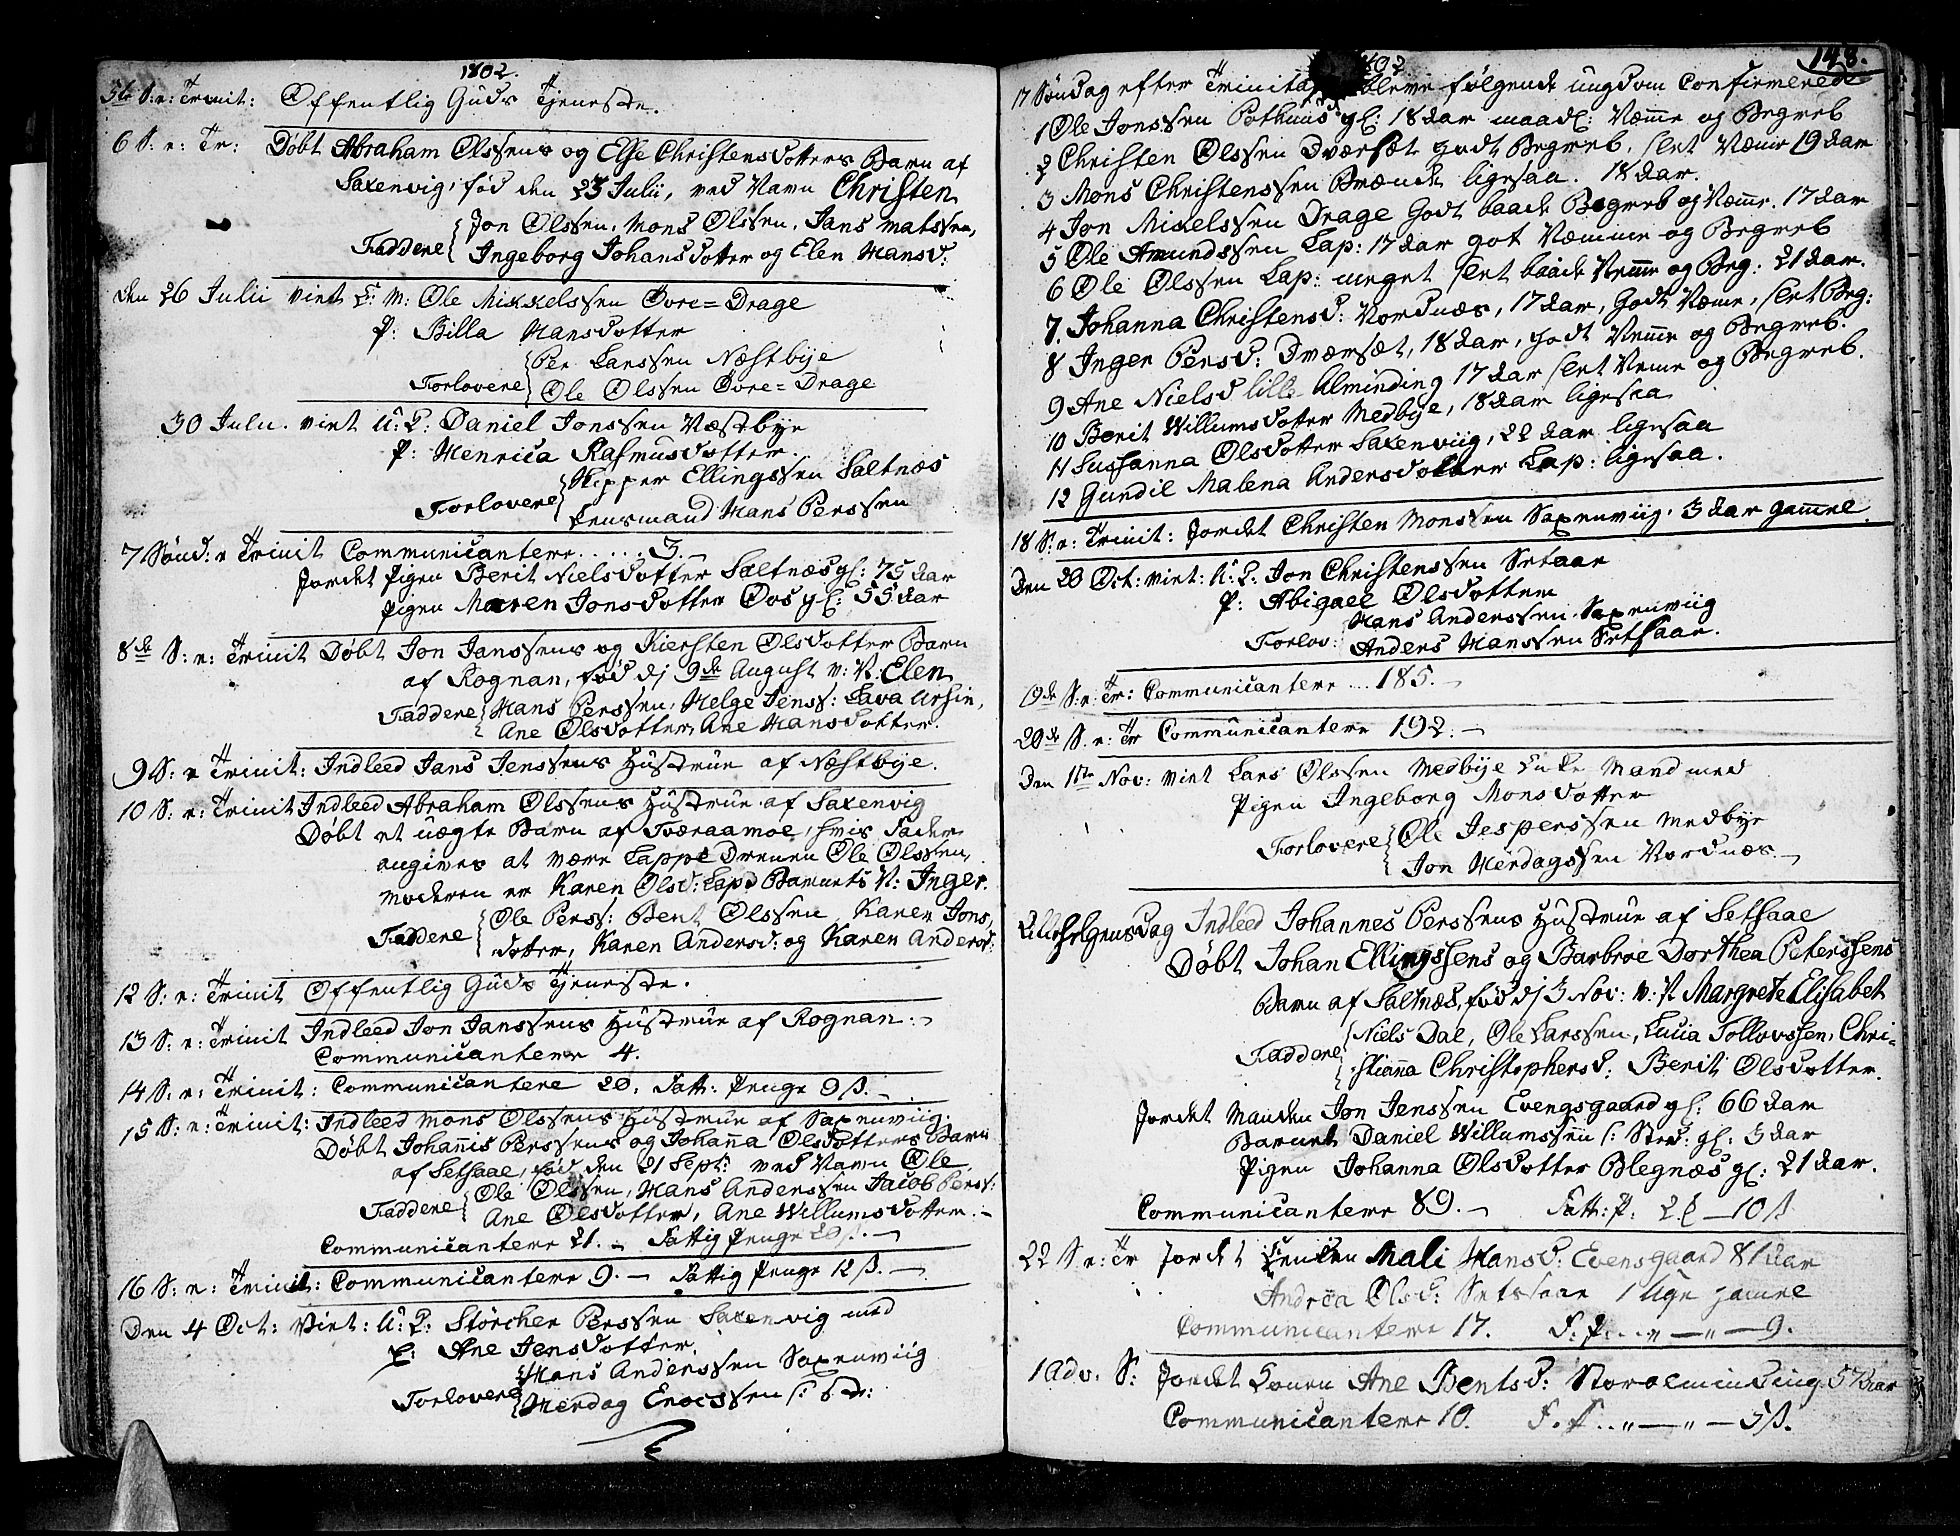 1802.
5te S: e: Trinit: Offentlig Guds Tjeneste.
6 S: e: Tr: Døbt Abraham Olssens og Else Christensdotters Barn af
Saxenvig, fød den 23 Julii, ved Navn Christen
Jon Olssen, Mons Olssen, Jans Matssen,
Faddere Ingeborg Johansdotter og Elen Hansd:
den 26 Julii viet E: M: Ole Mikkelssen Øvre=Drage
P: Billa Hansdotter
Per Larssen Næstbye
Forlovere Ole Olssen Øvre=Drage
30 Julii. viet U: K: Daniel Jonssen Næstbye
P: Henrica Rasmusdotter.
Skipper Ellingssen Saltnæs
Forlovere Lensmand Hans Perssen
7 Sønd: e Trinit Communicantere ...... 3.
Jordet Pigen Berit Nielsdotter Saltnæs gl: 75 Aar
Pigen Maren Jonsdotter Øvs gl: 55 Aar
8de S: e: Trinit Døbt Jon Janssens og Kiersten Olsdotter Barn
af Rognan, fød dj 9de August v: N: Elen
Faddere Hans Perssen, Helge Jenss: Lava Arhin,
Ane Olsdotter, Ane Hansdotter.
9 S: e Trinit: Indleed Jans Jenssens Hustrue af Næstbye.
10 S: e: Trinit Indleed Abraham Olssens Hustrue af Saxenvig
Døbt et uægte Barn af Tveraamoe, hvis Fader
angives at være Lappe Drenen Ole Olssen,
Moderen er Karen Olsd: Lap: Barnets N: Inger.
Ole Perss: Bent Olssen, Karen Jons,
Faddere dotter, Karen Andersd: og Karen Andersd:
12 S: e: Trinit Offentlig Guds Tjeneste.
13 S: e: Trinit Indleed Jon Janssens Hustrue af Rognan.
Communicantere 4.
14 S: e: Trinit: Communicantere 20. Fatt: Penge 9 ß.
15 S: e: Trinit: Indleed Mons Olssens Hustrue af Saxenviig.
Døbt Johannis Perssens og Johanna Olsdotters Barn
af Setsaae, fød den 21 Sept: ved Navn Ole
Ole Olssen, Hans Anderssen Jacob Perss:
Faddere Ane Olsdotter, Ane Willumsdotter.
Communicantere 21. Fattig Penge 20 ß.
16 S: e: Trinit: Communicantere 9. Fattig Penge 12 ß.
Den 4 Oct: Viet: U: K: Størcher Perssen Saxenvig med
P: Ane Jensdotter.
Hans Anderssen Saxenviig
Forlovere Herdag Enocssen
1802.
148.
17 Søndag efter Trinitatis bleve følgende ungdom Confirmerede
1 Ole Jonssen Pothuus gl: 18 Aar maadl: Næme og Begreb
2 Christen Olssen Dværset godt Begreb, slet Næme 19 Aar
3 Mons Christenssen Brænde ligesaa. 18 Aar.
4 Jon Mikelssen Drage Godt baade Begreb og Næme. 17 Aar
5 Ole Amundssen Lap: 17 Aar got Næmme og Begreb
6 Ole Olssen Lap: meget slet baade Næme og Beg: 21 Aar.
7. Johanna Christensd: Nordnæs, 17 Aar, Godt Næme, slet Beg:
8 Inger Persd: Dværset, 18 Aar, godt Næme og Begreb.
9 Ane Nielsd lille Alminding 17 Aar slet Næme og Begreb.
10 Berit Willumsdotter Medbye, 18 Aar ligesaa
11 Sussanna Olsdotter Saxenviig, 22 Aar ligesaa
12 Gundil Malena Andersdotter Lap: ligesaa.
18 S: e: Trinit: Jordet Christen Monssen Saxenviig. 3 Aar gamel.
Den 20 Oct: viet: U: K: Jon Christenssen Setsaae
P: Abigael Olsdotter
Hans Anderssen Saxenviig
Forlov: Anders Hanssen Setsaae.
19de S: e: Tr: Communicantere .... 185.
20de S. e: Tr Communicantere 192.
Den 11te Nov: viet Lars Olssen Medbye Enke Mand med
Pigen Ingeborg Monsdotter
Forlovere Ole Jesperssen Medbye
Jon Herdagssen Nordnæs.
Allehelgens Dag Indleed Johannes Perssens Hustrue af Setsaae
Døbt Johan Ellingssens og Barbroe Dorthea Peterssens
Barn af Saltnæs, fød dj 3 Nov: v: N Margrete Elisabet
Niels Dal, Ole Larssen, Lucia Tollovssen, Chri-
Faddere stianna Christophersd: Berit Olsdotter.
Jordet Manden Jon Jenssen Evengsgaard gl: 66 Aar
Barnet Daniel Willumssen gl: 3 Aar
Pigen Johanna Olsdotter Blegnæs gl: 21 Aar.
Communicantere 89. Fatt: P: 2 10 ß
22 S e: Tr Jordet Enken Mali Hansd: Evensgaard 81 Aar
Andrea Olsd: Setssaae 1 Uge gamel
Communicantere 17. F. P. .. " — " — 9.
1 Adv. S: Jordet Konen Ane Bentsd: Storalminding 57 Aar
Communicantere 10. F. P. .. " — " — 3 ß.